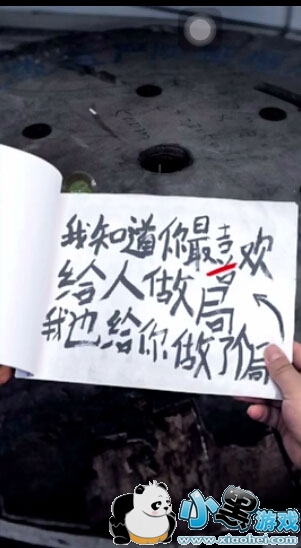 我知道你最喜欢
给人做局
我也给你做了个局
小黑游戏
www.xiaohei.com